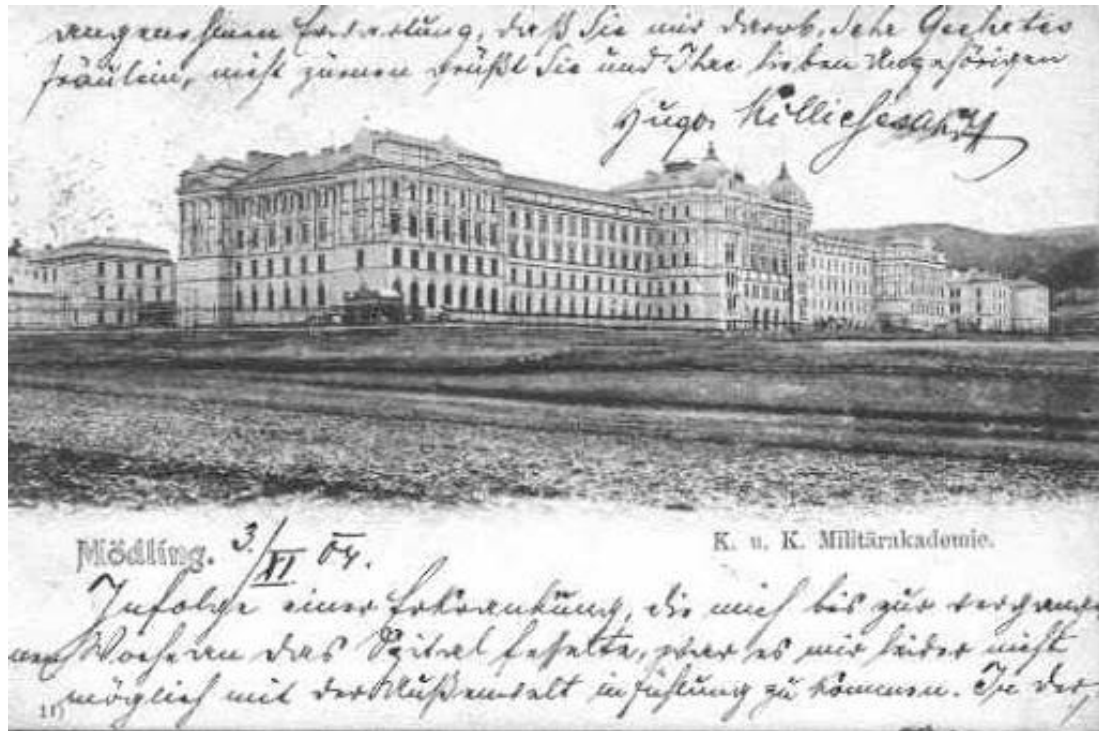 angenehmen Erwartung, daß Sie mir darob, sehr Geehrtes
Fräulein, nicht zürnen grüßt Sie und Ihre lieben Angehörigen
Hugo
Mödling. 3./XI 04.
K. u. K. Militärakademie.
Infolge einer Erkrankung, die mich bis zur vergange
nen Woche an das Spital fesselte, war es mir leider nicht
möglich mit der Außenwelt in Fühlung zu kommen. In der
11)